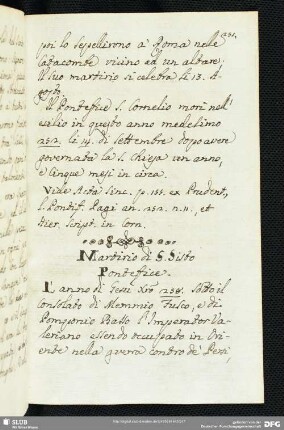 231.
poi lo sepellirono a' Roma nele
Catacombe vicino ad un altare,
Il suo martirio si celebra li 13. A-
gosto.
Il Pontefice S. Cornelio morì nell'
esilio in questo anno medesimo
252. li 14. di Settembre dopo avere
governata la S. Chiesa un anno,
e cinque mesi in circa.
Vide Acta Sinc. p. 188. ex Prudent,
S. Pontif. Pagi an. 252. n. 11., et
Hier. Script. in Corn.
Martirio di S. Sisto
Pontefice.
L'anno di Gesù Xro 258. Sotto il
Consolato di Memmio Fusco, e di
Pomponio Basso l'Imperator Va-
leriano essendo occupato in Ori-
ente nella guera contro de' Persi,
SLUB
Wir führen Wissen.
gefördert von der
Deutschen Forschungsgemeinschaft
DFG